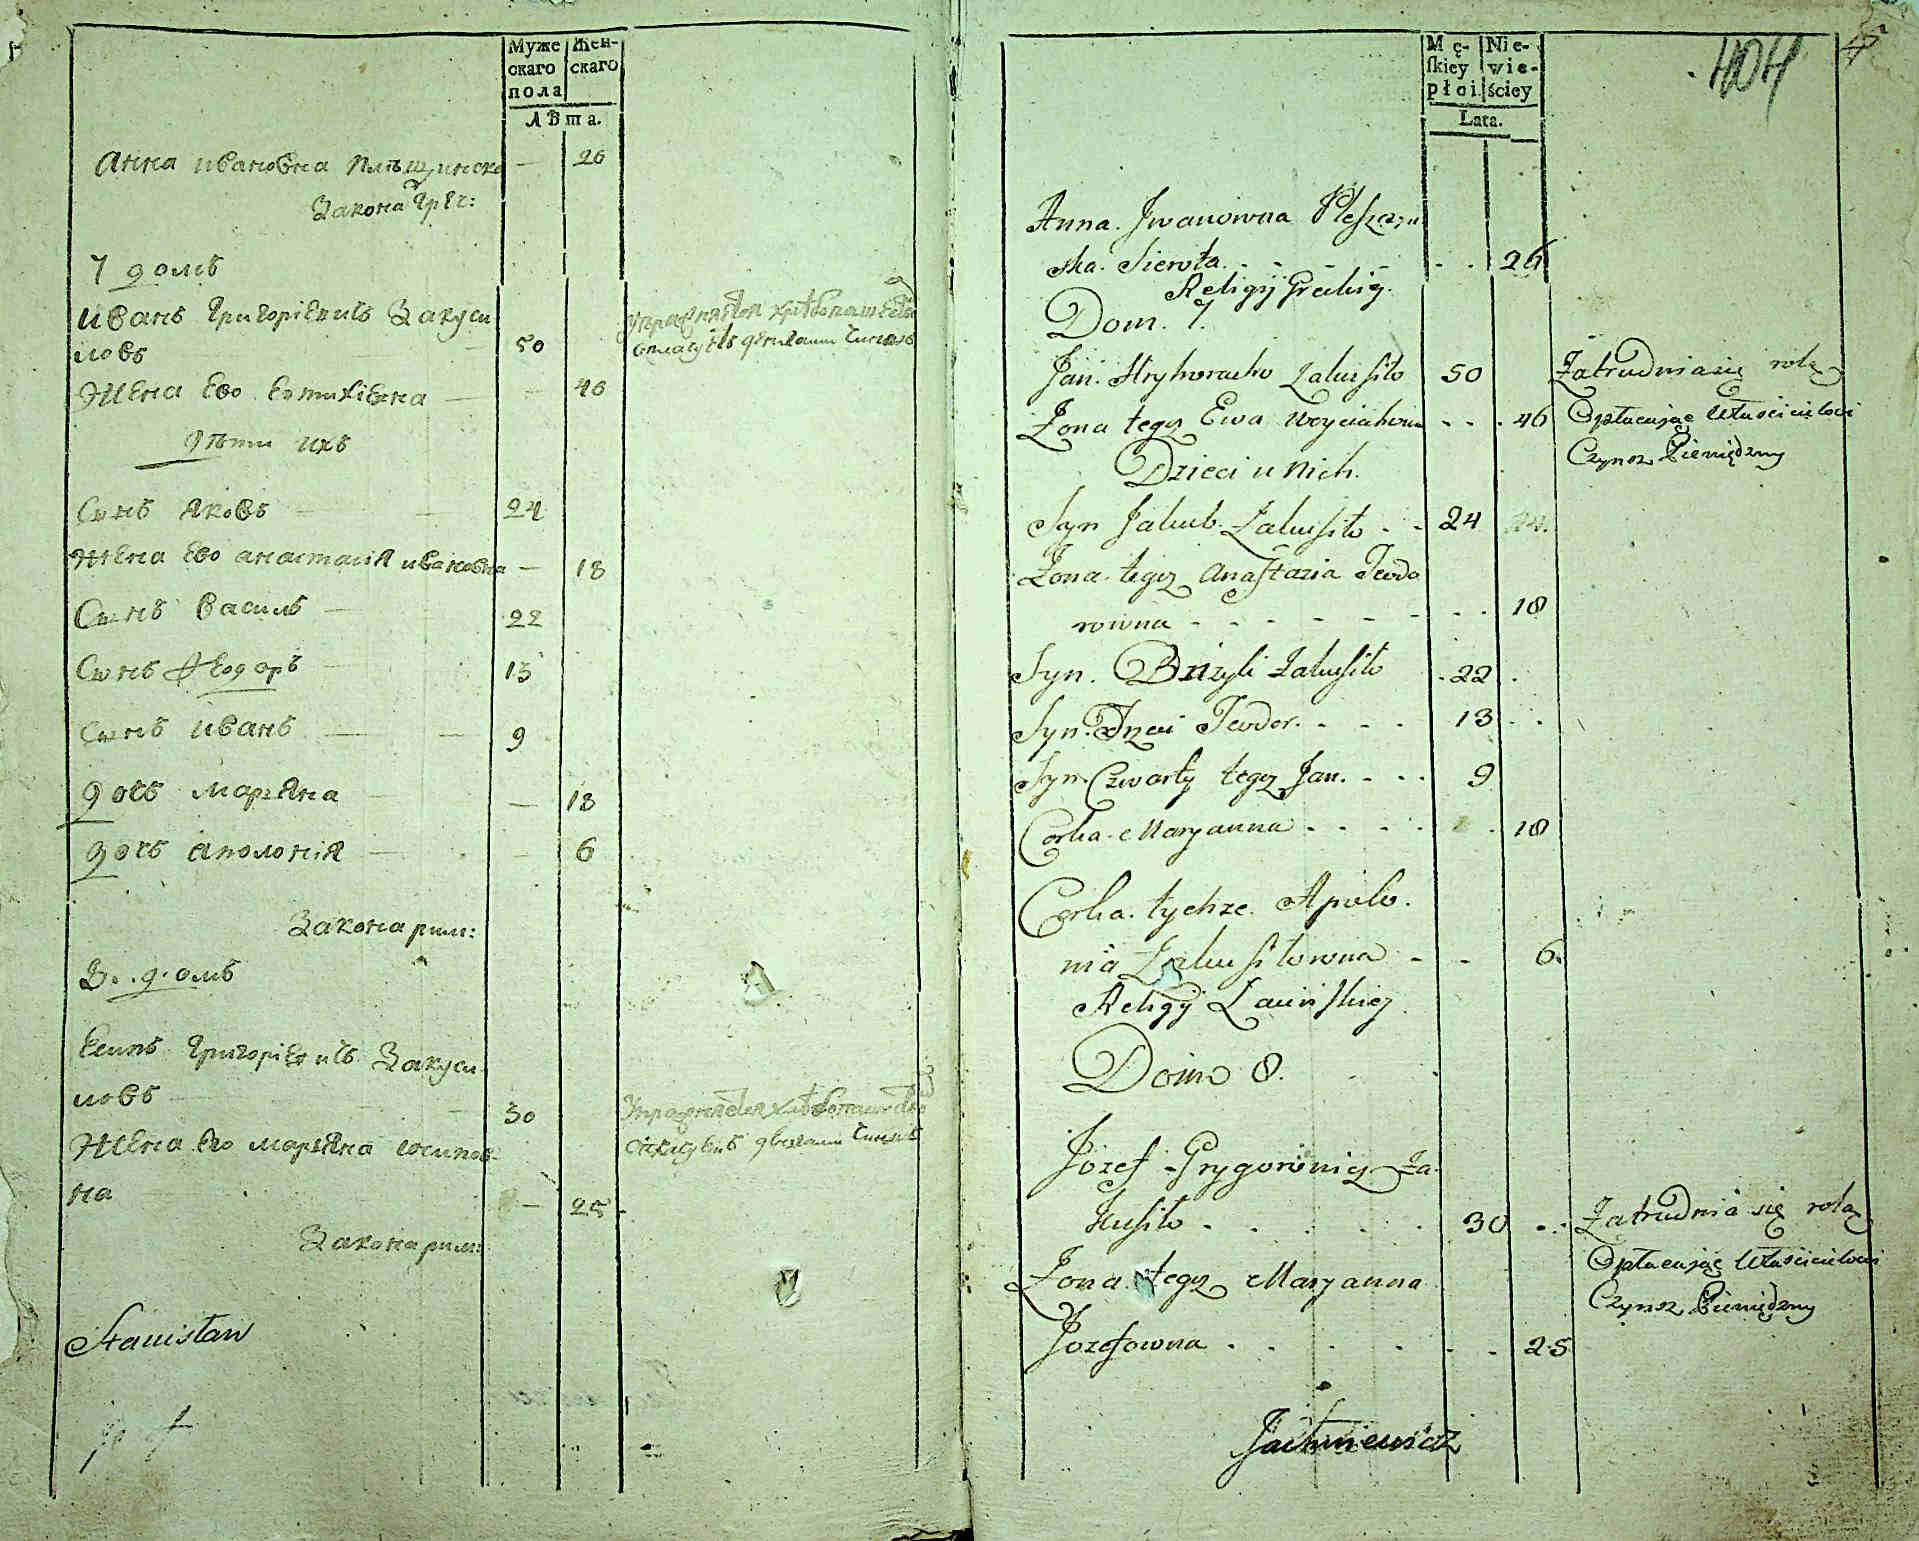 Муже
скаго
пола
Жен-
скаго
Лѣта.
Анна Ивановна Плѣщинска — 26
Закона Греч:
7 домъ
Иванъ Григоріевичъ Закуси
ловъ 50
Жена Его — 46
Дѣти ихъ
Сынъ Яковъ — 24
Жена Его Анастасія Ивановна — 18
Сынъ Василь — 22
Сынъ Ѳеодоръ 13
Сынъ Иванъ — 9
Дочь Марьяна — 18
Дочь Аполонія — 6
Закона рим:
8. домъ
Есипъ Григоріевичъ Закуси
ловъ 30
Жена Его Марьяна Іосипов
на — 25
Закона рим:
Stanisław
Mę-
skiey
płci.
Nie-
wie-
ściey
Lata.
404
Anna Iwanowna Pleszczyn
ska Sierota 26
Religij Greckiey
Dom. 7.
Jan Hryhoracko Zakusiło 50
Zatrudnia się rolą
Żona tegoż Ewa Woyciechowna 46
Opłacając Właścicielowi
Czynsz Pieniężny
Dzieci u Nich.
Syn Jakub Zakusiło 24
Żona tegoż Anastazia Teodo
rowna 18
Syn Bazyli Zakusiło 22
Syn Trzeci Teodor 13
Syn Czwarty tegoż Jan 9
Corka Maryanna 18
Corka tychże Apolo.
nia Zakusiłowna 6.
Religij Łacińskiey
Dom 8.
Jozef Grygorowicz Za
kusiło 30
Zatrudnia się rolą
Opłacając Właścicielowi
Czynsz Pieniężny
Żona tegoż Maryanna
Jozefowna 25
Jachniewicz